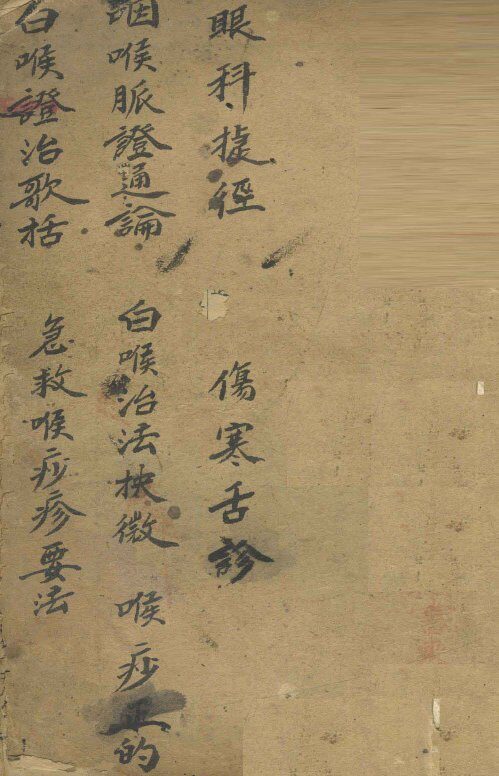 眼科捷徑 傷寒舌診
咽喉脈證通論 白喉治法抉微 喉痧正的
白喉證治歌括 急救喉痧疹要法